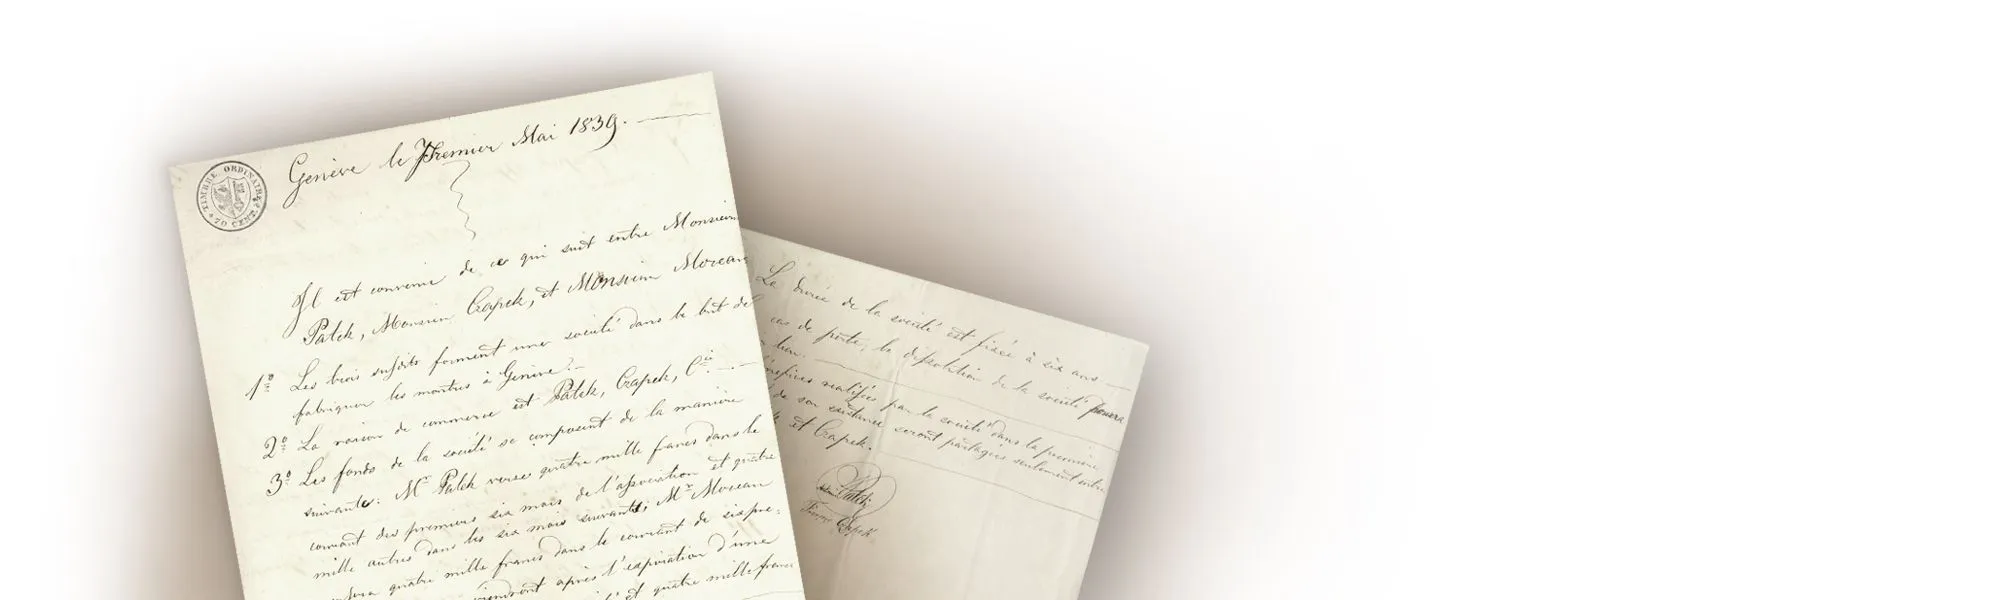 TIMBRE ORDINAIRE
70 CENT.
Genève le Premier Mai 1839.
Il est convenu de ce qui suit entre Monsieur
Patek, Monsieur Czapek, et Monsieur Moreau
1º Les trois susdits forment une société dans le but de
fabriquer les montres à Genève.
2º La raison de commerce est Patek, Czapek, Cie.
3º Les fonds de la société se composent de la manière
suivante: Mr Patek verse quatre mille francs dans le
courant des premiers six mois de l'association et quatre
mille autres dans les six mois suivants; Mr Moreau
quatre mille francs dans le courant de six pre-
après l'expiration d'une
et quatre mille francs
La durée de la société est fixée à six ans
cas de perte, la dissolution de la société pourra
lieu.
réalisées par la société dans la première
de son existence seront partagées seulement entre
et Czapek.
Patek
Czapek